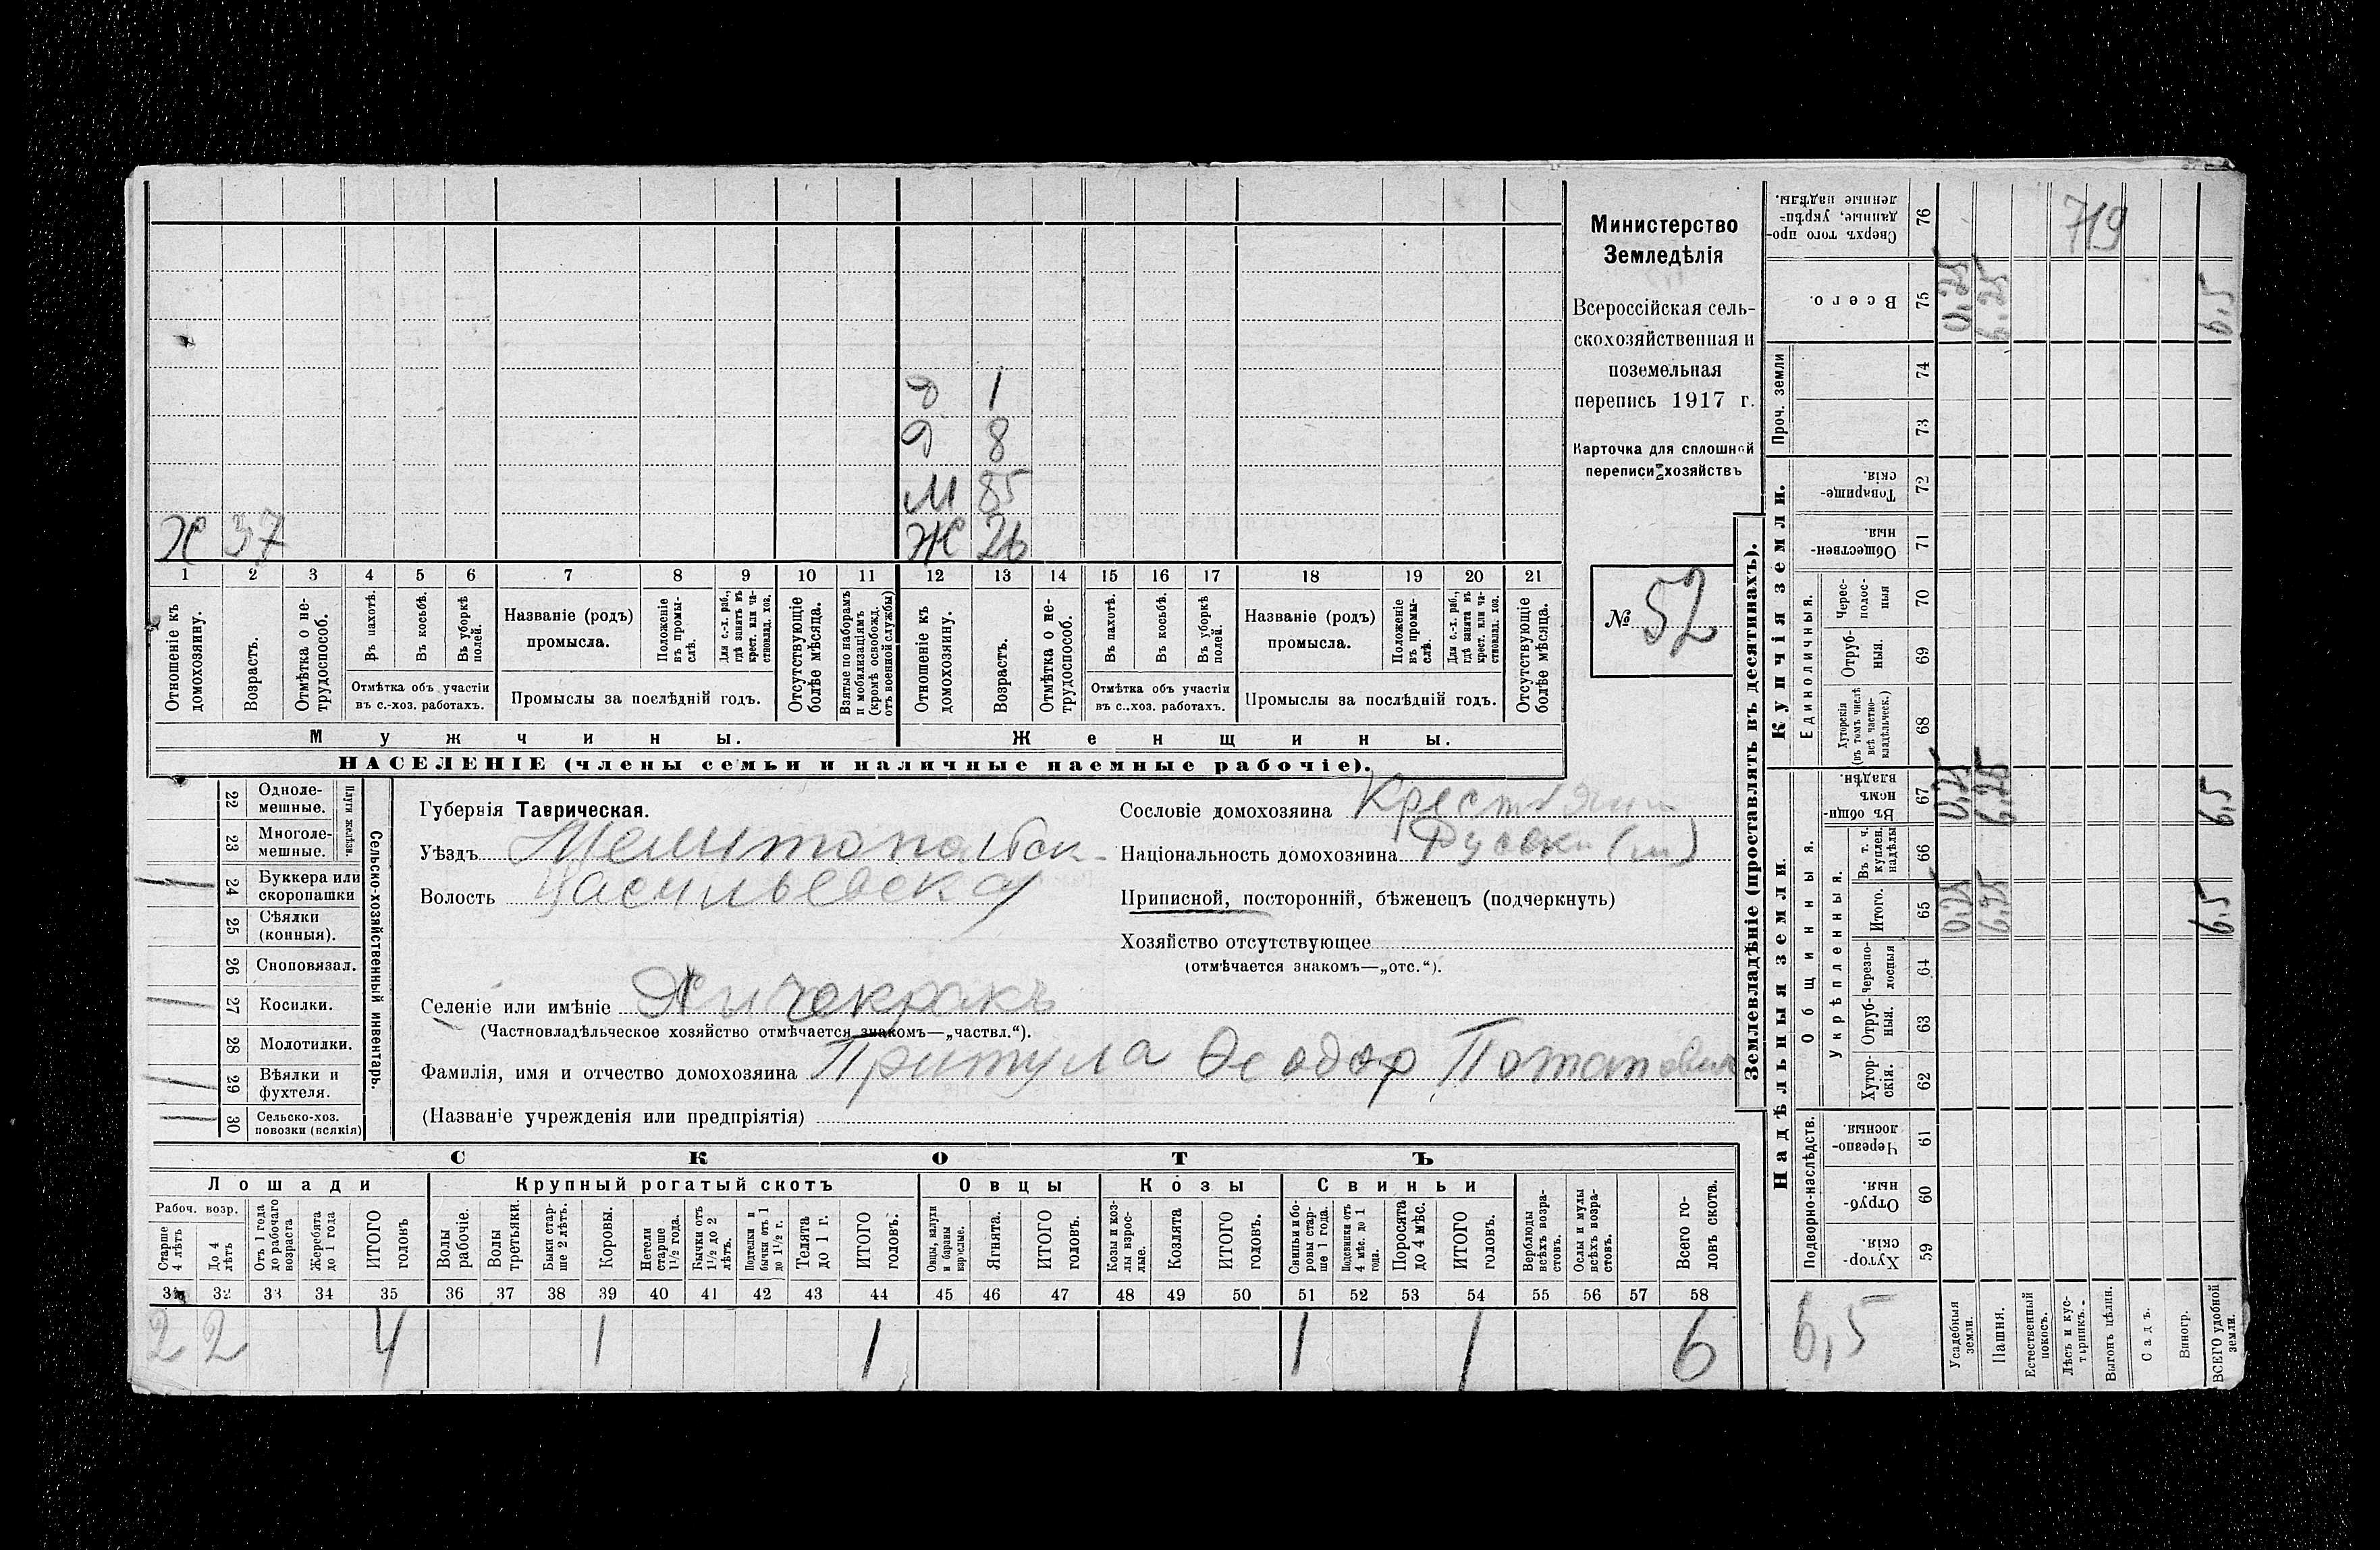 Д 1
Д 8
М 85
Х 37 Ж 26
1 2 3 4 5 6 7 8 9 10 11 12 13 14 15 16 17 18 19 20 21
Отношеніе къ домохозяину.
Возрастъ.
Отмѣтка о нетрудоспособ.
Въ пахотѣ.
Въ косьбѣ.
Въ уборкѣ полей.
Отмѣтка объ участіи
въ с.-хоз. работахъ.
Названіе (родъ)
промысла.
Положеніе въ промыслѣ.
Для с.-х. раб., гдѣ занятъ въ крест. или частновлад. хоз.
Промыслы за послѣдній годъ.
Отсутствующіе болѣе мѣсяца.
Взятые по наборамъ и мобилизаціямъ (кромѣ освобожд. отъ военной службы)
Отношеніе къ домохозяину.
Возрастъ.
Отмѣтка о нетрудоспособ.
Въ пахотѣ.
Въ косьбѣ.
Въ уборкѣ полей.
Отмѣтка объ участіи
въ с.-хоз. работахъ.
Названіе (родъ)
промысла.
Положеніе въ промыслѣ.
Для с.-х. раб., гдѣ занята въ крест. или частновлад. хоз.
Промыслы за послѣдній годъ.
Отсутствующіе болѣе мѣсяца.
Мужчины. Женщины.
НАСЕЛЕНІЕ (члены семьи и наличные наемные рабочіе).
Министерство
Земледѣлія
Всероссійская сель-
скохозяйственная и
поземельная
перепись 1917 г.
Карточка для сплошной
переписи хозяйствъ
№ 52
22 Одноле-
мешные.
23 Многоле-
мешные.
Плуги желѣзн.
24 Буккера или
скоропашки
25 Сѣялки
(конныя).
26 Сноповязал.
27 Косилки.
28 Молотилки.
29 Вѣялки и
фухтеля.
30 Сельско-хоз.
повозки (всякія)
Сельско-хозяйственный инвентарь.
Губернія Таврическая.
Уѣздъ Мелитопольск
Волость Васильевская
Селеніе или имѣніе Янчекракъ
(Частновладѣльческое хозяйство отмѣчается знакомъ—„частвл.“).
Фамилія, имя и отчество домохозяина Притула Ѳеодор Потапович
(Названіе учрежденія или предпріятія)
Сословіе домохозяина Крестьянин
Національность домохозяина Русски (м)
Приписной, посторонній, бѣженецъ (подчеркнуть)
Хозяйство отсутствующее
(отмѣчается знакомъ—„отс.“).
СКОТЪ
Лошади Крупный рогатый скотъ Овцы Козы Свиньи
Рабоч. возр.
Старше 4 лѣтъ
До 4 лѣтъ
Отъ 1 года до рабочаго возраста
Жеребята до 1 года
ИТОГО головъ
Волы рабочіе.
Волы третьяки.
Быки старше 2 лѣтъ.
Коровы.
Нетели старше 1½ года.
Бычки отъ 1½ до 2 лѣтъ.
Подтелки и бычки отъ 1 до 1½ г.
Телята до 1 г.
ИТОГО головъ.
Овцы, валухи и бараны взрослые.
Ягнята.
ИТОГО головъ.
Козы и козлы взрослые.
Козлята
ИТОГО головъ.
Свиньи и боровы старше 1 года.
Подсвинки отъ 4 мѣс. до 1 года.
Поросята до 4 мѣс.
ИТОГО головъ.
Верблюды всѣхъ возрастовъ.
Ослы и мулы всѣхъ возрастовъ.
Всего головъ скота.
31 32 33 34 35 36 37 38 39 40 41 42 43 44 45 46 47 48 49 50 51 52 53 54 55 56 57 58
2 2 4 1 1 1 1 6
Землевладѣніе (проставлять въ десятинахъ).
Надѣльныя земли. Купчія земли. Проч. земли
Подворно-наслѣдств.
Общинныя.
Укрѣпленныя.
Единоличныя.
76 Сверхъ того проданные, укрѣпленные надѣлы. 719
75 Всего. 0,25 6,25 6,5
74
73
72 Товарищескія.
71 Общественныя.
70 Черезполосныя
69 Отрубныя.
68 Хуторскія (въ томъ числѣ всѣ частновладѣльческ.)
67 Въ общинномъ владѣн. 0,25 6,25 6,5
66 Въ т. ч. куплен. надѣлы
65 Итого. 0,25 6,25 6,5
64 Черезполосныя
63 Отрубныя.
62 Хуторскія.
61 Черезполосныя.
60 Отрубныя.
59 Хуторскія.
6,5
Усадебныя земли.
Пашня.
Естественный покосъ.
Лѣсъ и кустарникъ.
Выгонъ цѣлин.
Садъ.
Виногр.
ВСЕГО удобной земли.